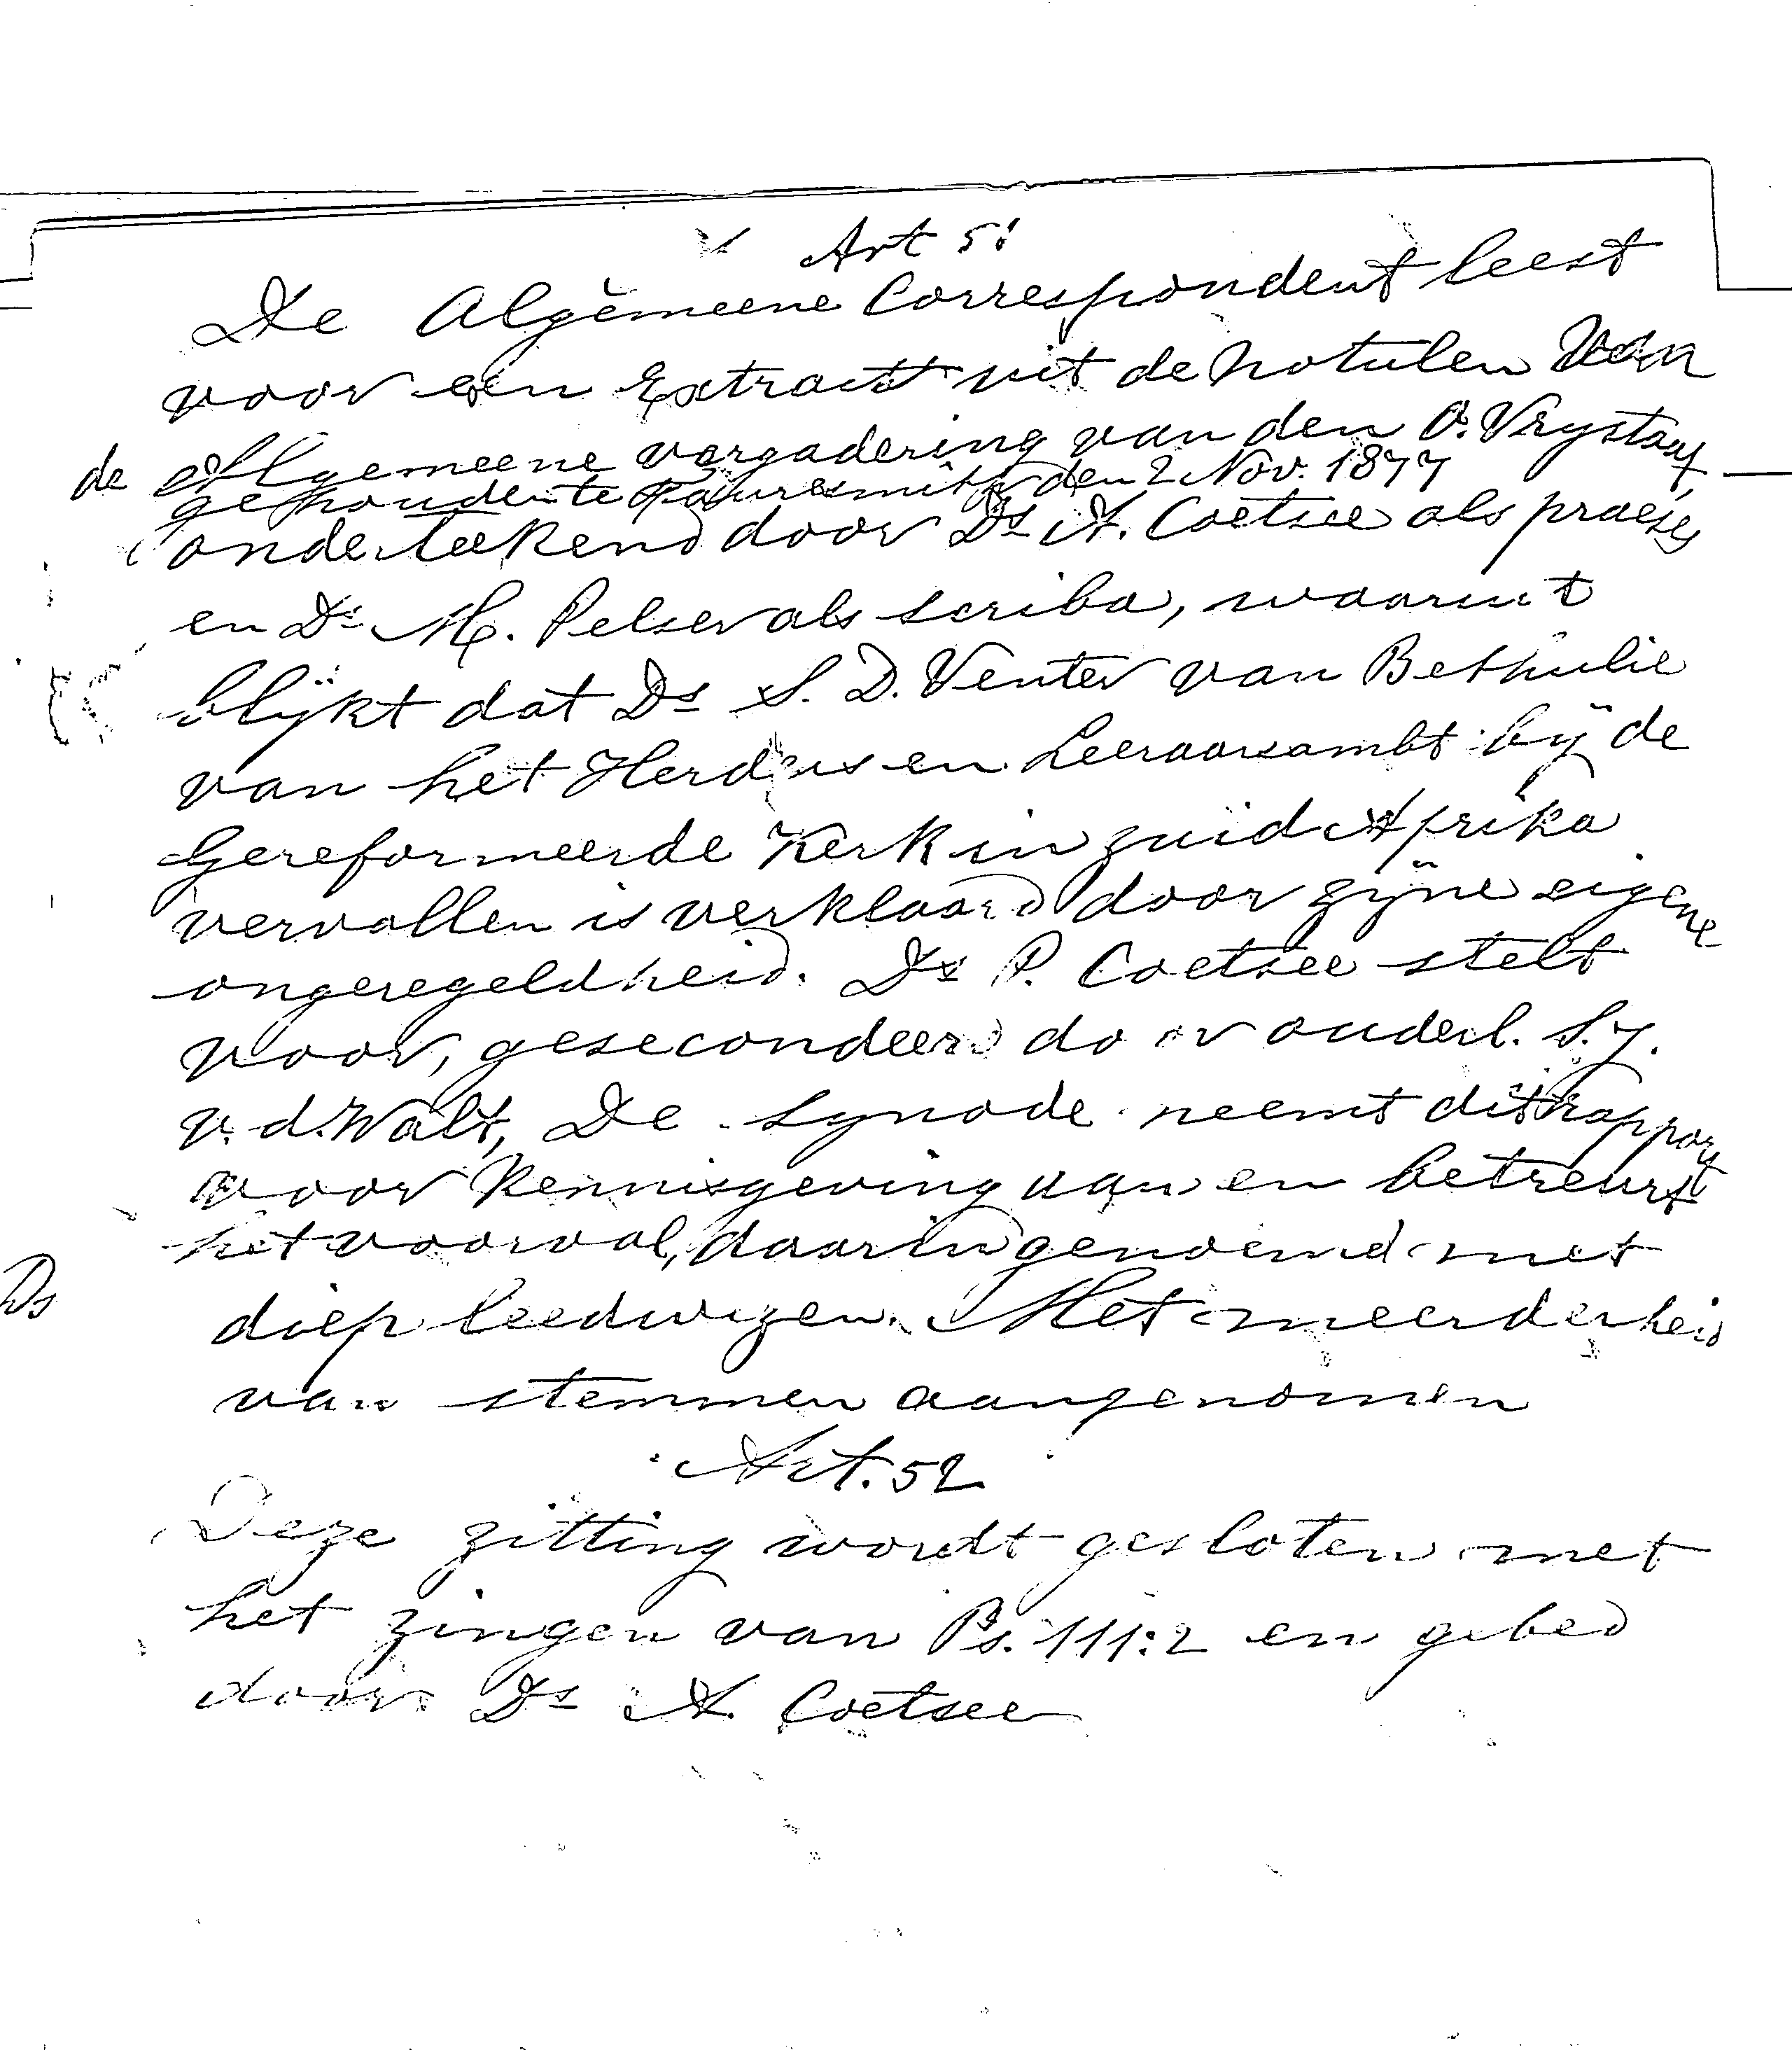 Art 51
De Algemeene Correspondent leest
voor een Extract uit de Notulen van
de Algemeene vergadering van den O. Vrystaat,
gehouden te Fauresmith, den 2 Nov. 1877
onderteekend door Ds A. Coetsee als praeses
en Ds M. Pelser als scriba, waaruit
blijkt dat Ds S. D. Venter van Bethulie
van het Herders en Leeraarsambt bij de
Gereformeerde Kerk in Zuid Afrika
vervallen is verklaard door zijne eigene
ongeregeldheid. Ds P. Coetsee stelt
voor, gesecondeerd door ouderl. S. J.
v. d. Walt, De Synode neemt dit rapport
voor Kennisgeving aan en betreurt
het voorval, daarin genoemd met
Ds
diep leedwezen. Met meerderheid
van stemmen aangenomen
Art. 52
Deze zitting wordt gesloten met
het zingen van Ps. 111:2 en gebed
door Ds A. Coetsee